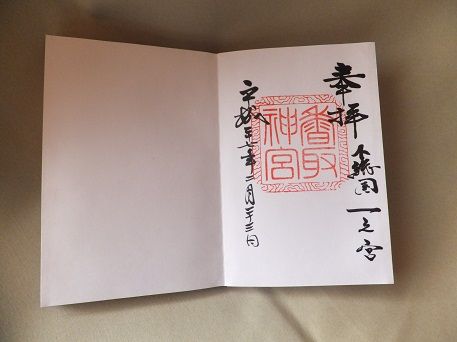 奉拝
下総国一之宮
香取
神宮
平成二十七年二月二十三日